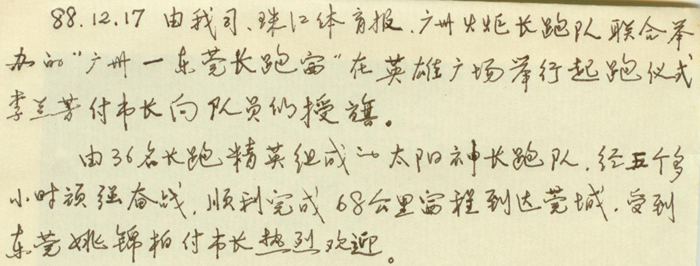 88.12.17 由我司、珠江体育报、广州火炬长跑队联合举
办的"广州—东莞长跑赛"在英雄广场举行起跑仪式
李兰芳付市长向队员们授旗。
由36名长跑精英组成的太阳神长跑队,经五个多
小时顽强奋战,顺利完成68公里赛程到达莞城,受到
东莞姚锦柏付市长热烈欢迎。